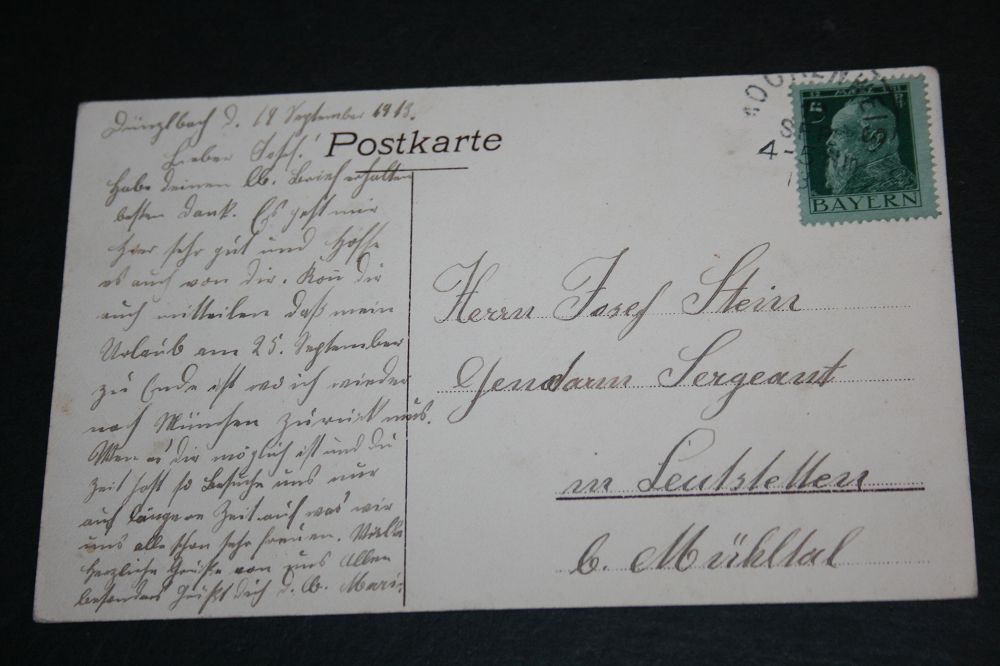 Dünzlbach d. 18 September 1913.
Postkarte
Lieber Josef!
Habe deinen lb. Brief erhalten
besten Dank. Es geht mir
hier sehr gut und hoffe
es auch von dir. Kan̄ dir
auch mitteilen daß mein
Urlaub am 25. September
zu Ende ist wo ich wieder
nach München zurück muß.
Wen es dir möglich ist und du
Zeit hast so besuche uns nur
auf längere Zeit auf was wir
uns alle schon sehr freuen. Viele
herzliche Grüße von uns Allen
besonders Grüßt dich d. lb. Mari.
5
BAYERN
4-5
Herrn Josef Stein
Gendarm Sergeant
in Leutstetten
b. Mühltal